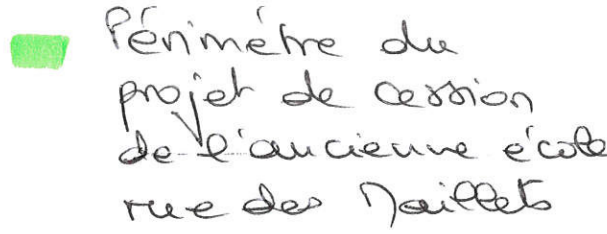 Périmètre du
projet de cession
de l'ancienne école
rue des Maillets